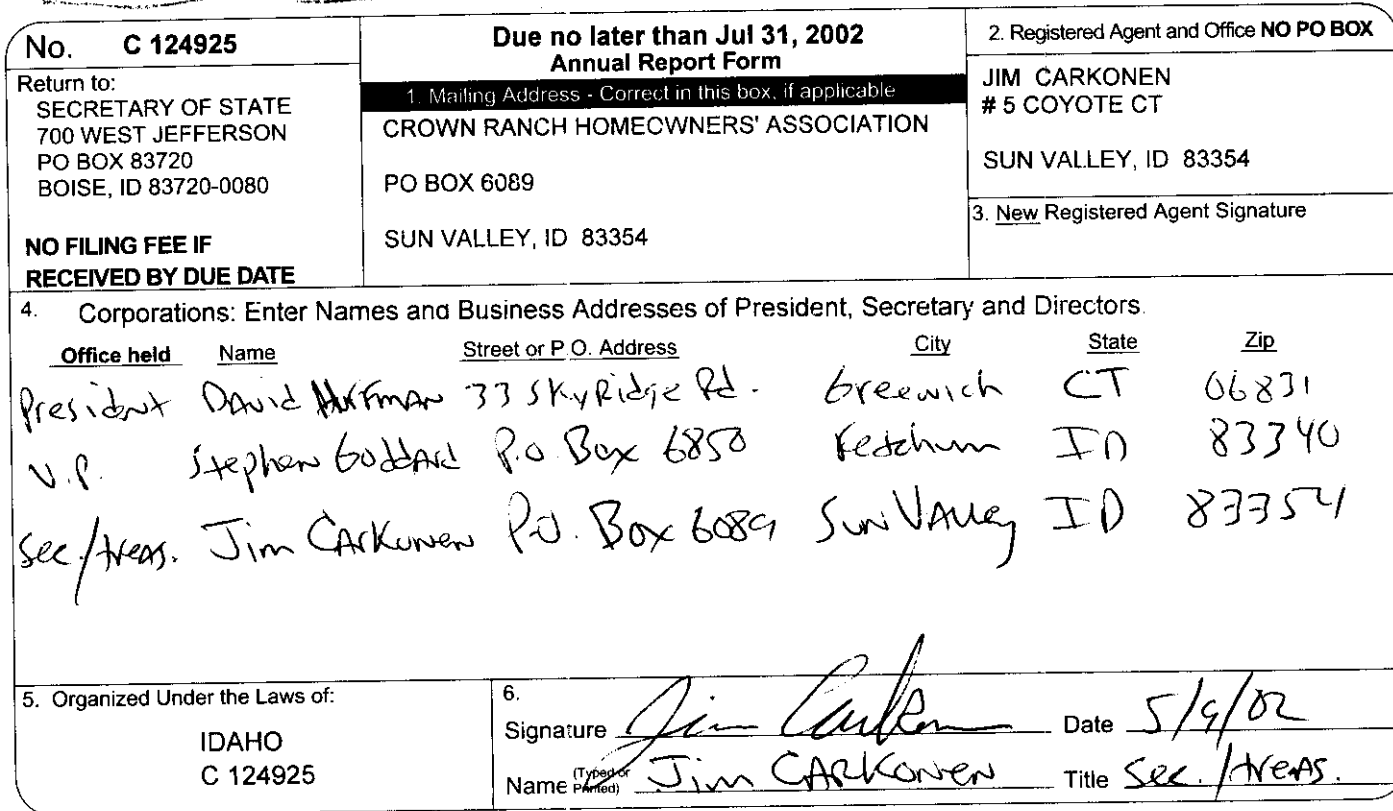 No. C 124925
Return to:
SECRETARY OF STATE
700 WEST JEFFERSON
PO BOX 83720
BOISE, ID 83720-0080
NO FILING FEE IF
RECEIVED BY DUE DATE
Due no later than Jul 31, 2002
Annual Report Form
1. Mailing Address - Correct in this box, if applicable
CROWN RANCH HOMEOWNERS' ASSOCIATION
PO BOX 6089
SUN VALLEY, ID 83354
2. Registered Agent and Office NO PO BOX
JIM CARKONEN
# 5 COYOTE CT
SUN VALLEY, ID 83354
3. New Registered Agent Signature
4. Corporations: Enter Names and Business Addresses of President, Secretary and Directors.
Office held Name Street or P.O. Address City State Zip
President David 33 Sky Ridge Rd. Greenwich CT 06831
V.P. Stephen Goddard P.O. Box 6850 Ketchum ID 83340
Sec./treas. Jim Carkonen P.O. Box 6089 Sun Valley ID 83354
5. Organized Under the Laws of:
IDAHO
C 124925
6.
Signature Jim Carkonen Date 5/9/02
Name (Typed or Printed) Jim Carkonen Title Sec./treas.